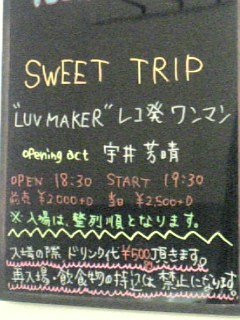 SWEET TRIP
"LUV MAKER" レコ発 ワンマン
opening act 宇井芳晴
OPEN 18:30 START 19:30
前売 ¥2000+D 当日 ¥2,500+D
※入場は、整列順となります。
入場の際 ドリンク代 ¥500頂きます。
再入場・飲食物の持込は 禁止になります。